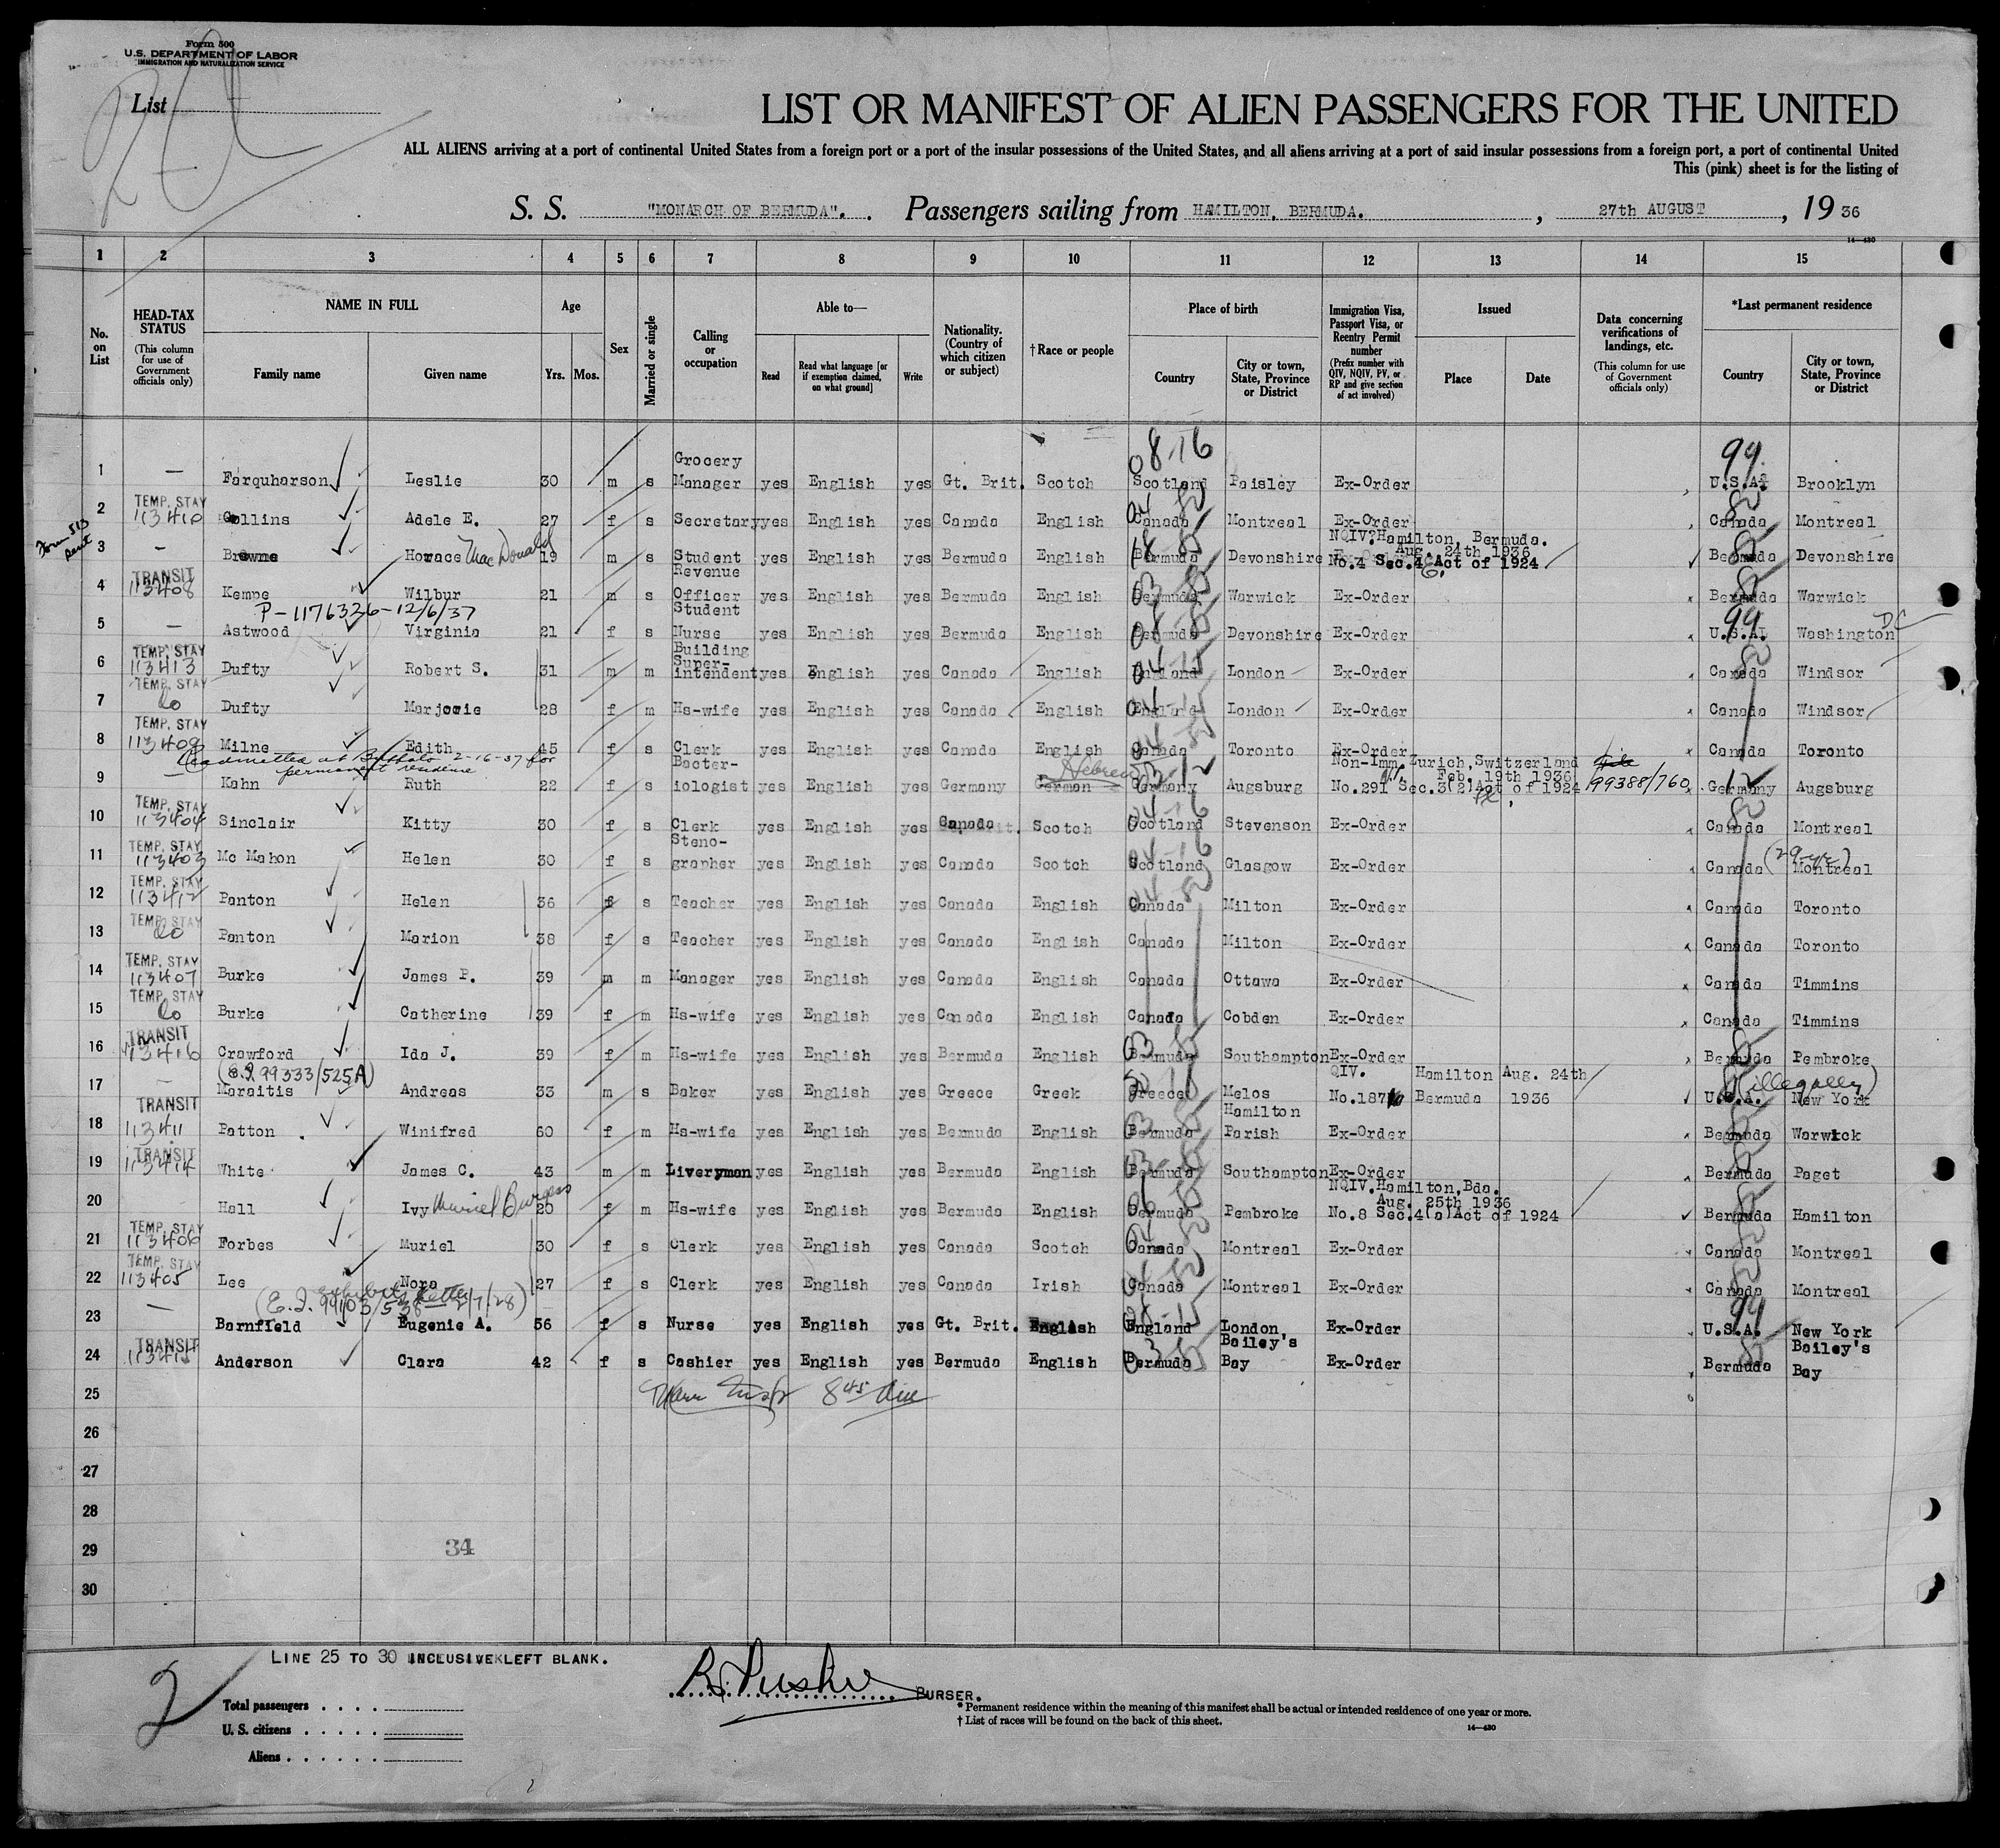 Form 500
U.S. DEPARTMENT OF LABOR
IMMIGRATION AND NATURALIZATION SERVICE
List
LIST OR MANIFEST OF ALIEN PASSENGERS FOR THE UNITED
ALL ALIENS arriving at a port of continental United States from a foreign port or a port of the insular possessions of the United States, and all aliens arriving at a port of said insular possessions from a foreign port, a port of continental United
This (pink) sheet is for the listing of
S. S. "MONARCH OF BERMUDA". Passengers sailing from HAMILTON, BERMUDA. , 27th AUGUST , 19 36
14—430
1 2 3 4 5 6 7 8 9 10 11 12 13 14 15
No. on List
HEAD-TAX STATUS (This column for use of Government officials only)
NAME IN FULL Family name Given name
Age Yrs. Mos.
Sex
Married or single
Calling or occupation
Able to— Read Read what language [or if exemption claimed, on what ground] Write
Nationality. (Country of which citizen or subject)
†Race or people
Place of birth Country City or town, State, Province or District
Immigration Visa, Passport Visa, or Reentry Permit number (Prefix number with QIV, NQIV, PV, or RP and give section of act involved)
Issued Place Date
Data concerning verifications of landings, etc. (This column for use of Government officials only)
*Last permanent residence Country City or town, State, Province or District
08-16 99
1 — Farquharson Leslie 30 m s Grocery Manager yes English yes Gt. Brit. Scotch Scotland Paisley Ex-Order U.S.A. Brooklyn
2 TEMP. STAY 113410 Collins Adele E. 27 f s Secretary yes English yes Canada English Canada Montreal Ex-Order Canada Montreal
Form 513 sent
3 - Browne Horace MacDonald 19 m s Student yes English yes Bermuda English Bermuda Devonshire NQIV. Hamilton, Bermuda. Aug. 24th 1936 No.4 Sec.4 Act of 1924 Bermuda Devonshire
4 TRANSIT 113408 Kempe Wilbur 21 m s Revenue Officer yes English yes Bermuda English Bermuda Warwick Ex-Order Bermuda Warwick
P-1176326-12/6/37
5 — Astwood Virginia 21 f s Student Nurse yes English yes Bermuda English Bermuda Devonshire Ex-Order 99 U.S.A. Washington DC
6 TEMP. STAY 113413 Dufty Robert S. 31 m m Building Super-intendent yes English yes Canada English England London Ex-Order Canada Windsor
7 TEMP. STAY do Dufty Marjorie 28 f m Hs-wife yes English yes Canada English England London Ex-Order Canada Windsor
8 TEMP. STAY 113409 Milne Edith 45 f s Clerk yes English yes Canada English Canada Toronto Ex-Order Canada Toronto
Readmitted at Buffalo 2-16-37 for permanent residence
9 — Kahn Ruth 22 f s Bacter-iologist yes English yes Germany German Hebrew Germany Augsburg Non-Imm. Zurich, Switzerland Feb. 19th 1936 No.291 Sec.3(2)Act of 1924 99388/760 Germany Augsburg
10 TEMP. STAY 113404 Sinclair Kitty 30 f s Clerk yes English yes Canada Scotch Scotland Stevenson Ex-Order Canada Montreal
11 TEMP. STAY 113403 Mc Mahon Helen 30 f s Steno-grapher yes English yes Canada Scotch Scotland Glasgow Ex-Order Canada (29 yr) Montreal
12 TEMP. STAY 113412 Panton Helen 36 f s Teacher yes English yes Canada English Canada Milton Ex-Order Canada Toronto
13 TEMP. STAY do Panton Marion 38 f s Teacher yes English yes Canada English Canada Milton Ex-Order Canada Toronto
14 TEMP. STAY 113407 Burke James P. 39 m m Manager yes English yes Canada English Canada Ottawa Ex-Order Canada Timmins
15 TEMP. STAY do Burke Catherine 39 f m Hs-wife yes English yes Canada English Canada Cobden Ex-Order Canada Timmins
16 TRANSIT 113416 Crawford Ida J. 39 f m Hs-wife yes English yes Bermuda English Bermuda Southampton Ex-Order Bermuda Pembroke
(E.I. 99333/525A)
17 — Maraitis Andreas 33 m s Baker yes English yes Greece Greek Greece Melos QIV. No.187 Hamilton Bermuda Aug. 24th 1936 U.S.A. (illegally) New York
18 TRANSIT 113411 Patton Winifred 60 f m Hs-wife yes English yes Bermuda English Bermuda Hamilton Parish Ex-Order Bermuda Warwick
19 TRANSIT 113414 White James C. 43 m m Liveryman yes English yes Bermuda English Bermuda Southampton Ex-Order Bermuda Paget
20 Hall Ivy Muriel Burgess 20 f m Hs-wife yes English yes Bermuda English Bermuda Pembroke NQIV. Hamilton, Bda. Aug. 25th 1936 No.8 Sec.4(a)Act of 1924 Bermuda Hamilton
21 TEMP. STAY 113406 Forbes Muriel 30 f s Clerk yes English yes Canada Scotch Canada Montreal Ex-Order Canada Montreal
22 TEMP. STAY 113405 Lee Nora 27 f s Clerk yes English yes Canada Irish Canada Montreal Ex-Order Canada Montreal
(E.I. 99103/538 2/7/28)
23 — Barnfield Eugenie A. 56 f s Nurse yes English yes Gt. Brit. English England London Ex-Order 99 U.S.A. New York
24 TRANSIT 113415 Anderson Clara 42 f s Cashier yes English yes Bermuda English Bermuda Bailey's Bay Ex-Order Bermuda Bailey's Bay
25 8 45
26
27
28
29 34
30
LINE 25 TO 30 INCLUSIVE LEFT BLANK.
2
PURSER.
Total passengers . . . .
U. S. citizens . . . . .
Aliens . . . . . .
* Permanent residence within the meaning of this manifest shall be actual or intended residence of one year or more.
† List of races will be found on the back of this sheet.
14—430